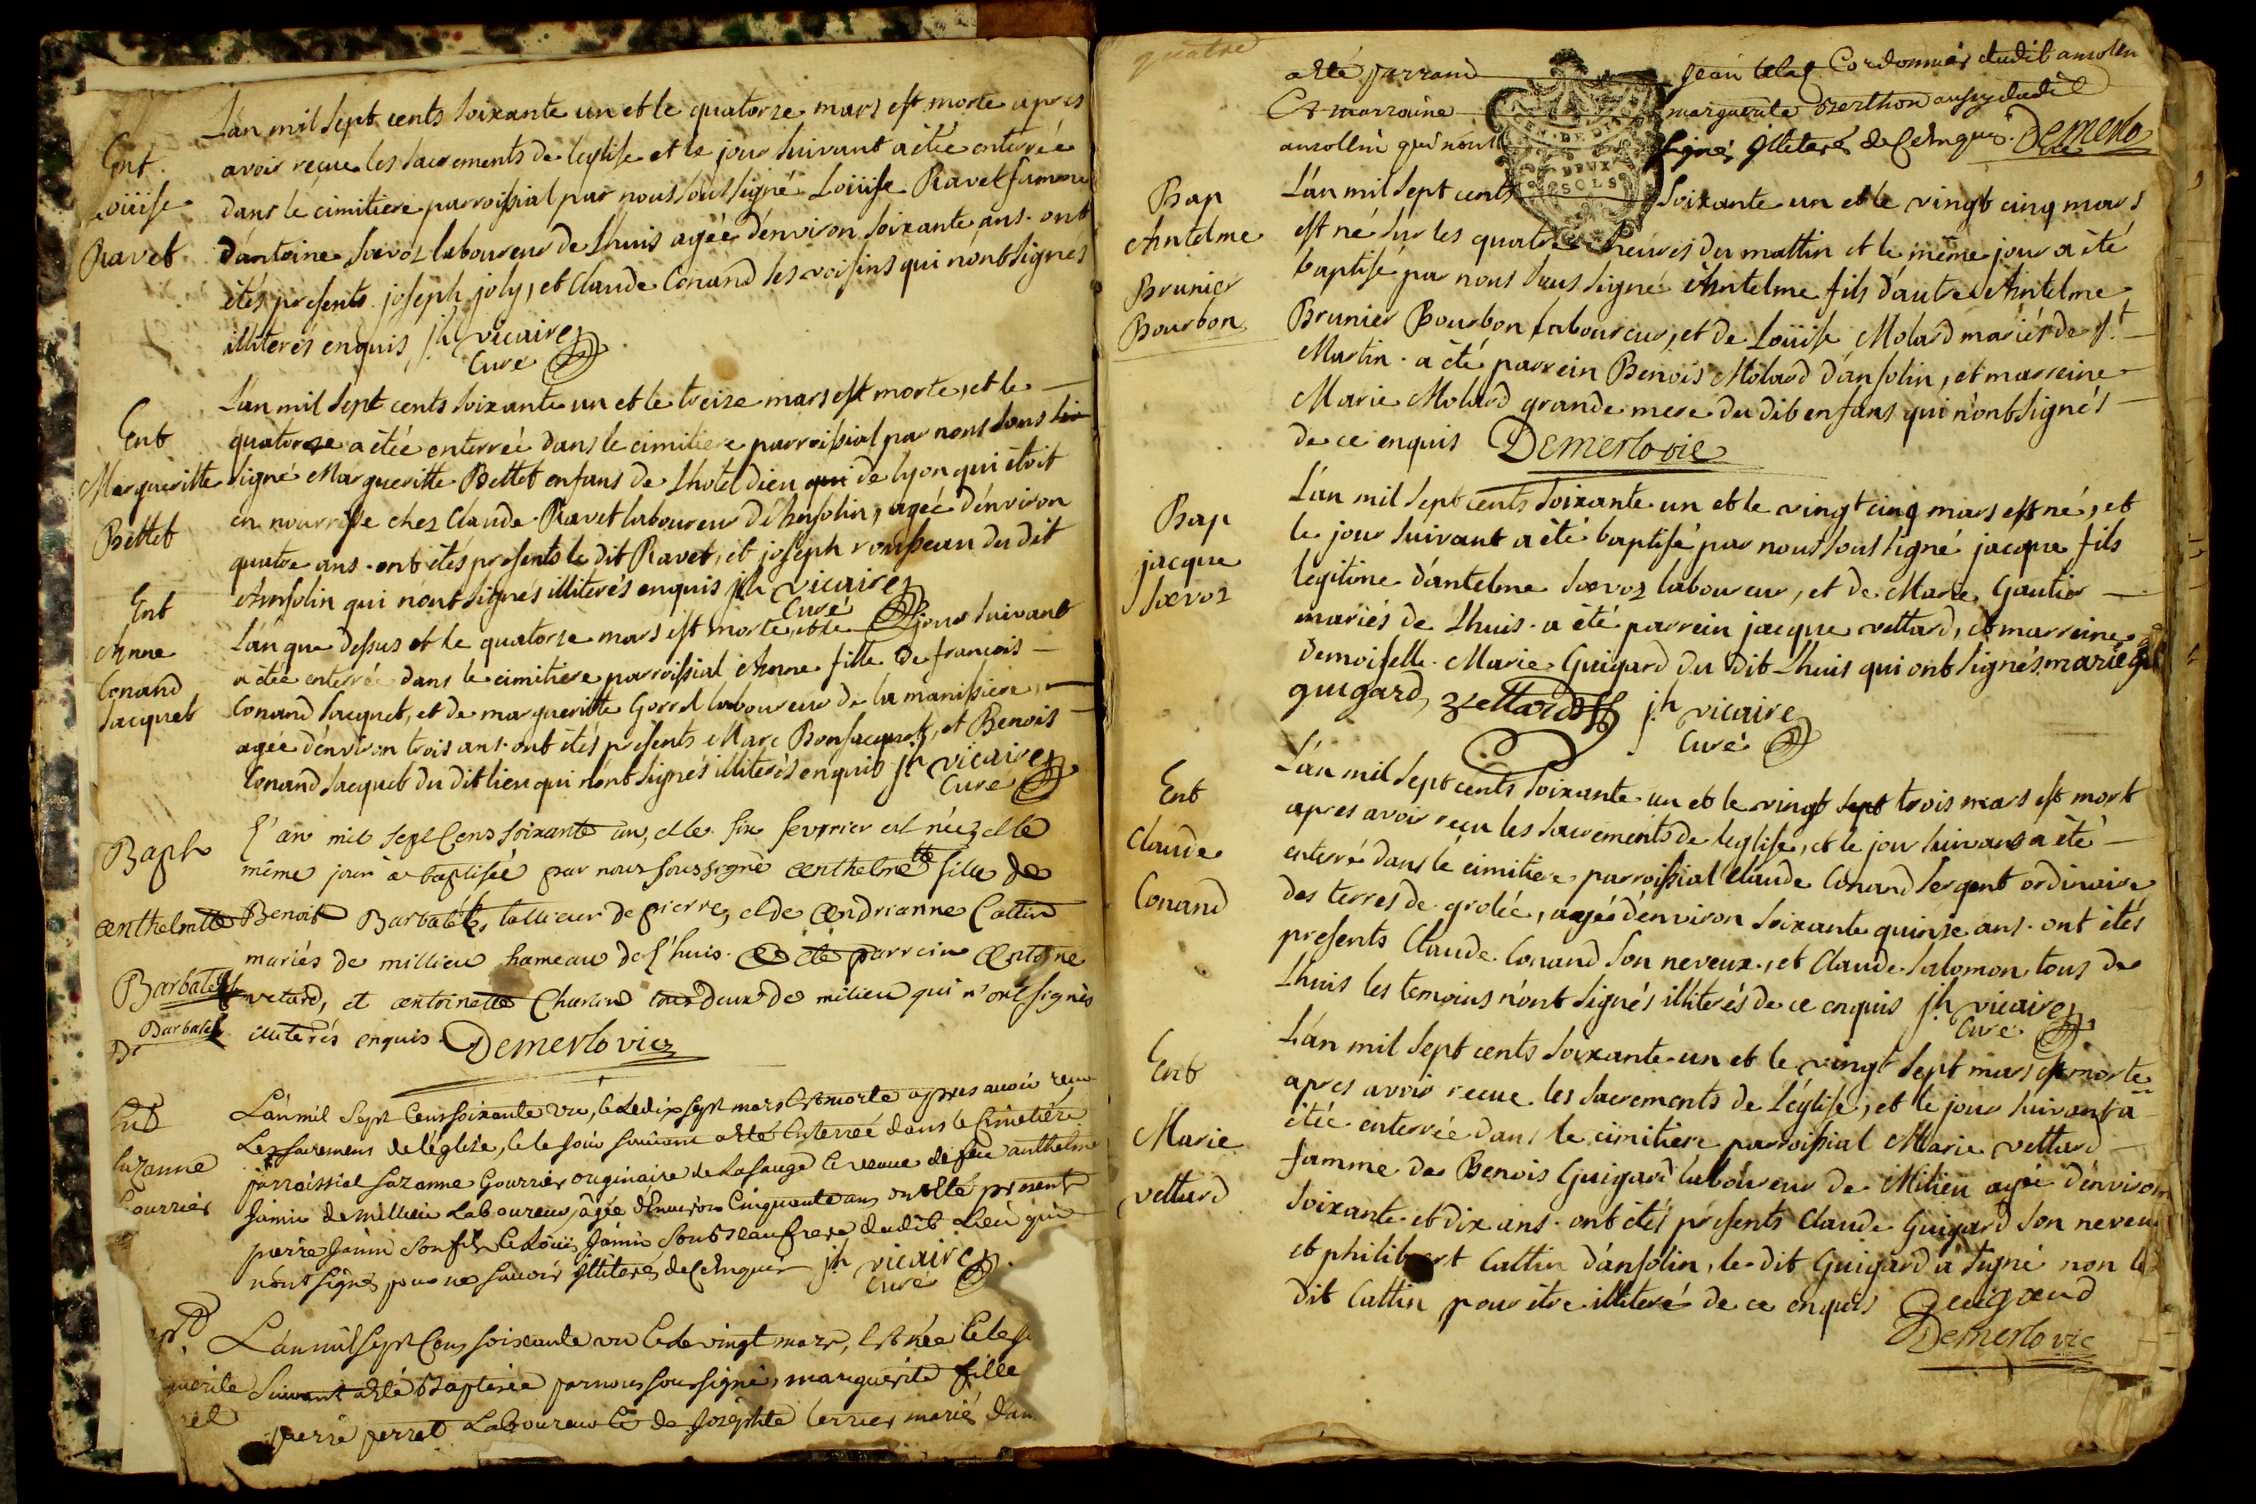 Ent
Loüise
Ravet
L'an mil sept cents soixante un et le quatorze mars est morte apres
avoir reçue les sacrements de l'eglise et le jour suivant a étée enterrée
dans le cimitiere parroissial par nous sous signé Loüise Ravet famme
d'antoine Sevoz laboureur de Lhuis agée d'environ soixante ans. ont
étés presents joseph joly, et Claude Conand ses voisins qui n'ont signés
illiterés enquis jh vicaire
Curé
Ent
Margueritte
Bettet
L'an mil sept cents soixante un et le treize mars est morte, et le
quatorze a étée enterrée dans le cimitiere parroissial par nous sous
signé Margueritte Bettet enfans de Lhotel dieu qui de lyon qui étoit
en nourrisse chez Claude Ravet laboureur d'Ansolin, agée d'environ
quatre ans. ont étés presents le dit Ravet, et joseph rousseau du dit
Ansolin qui n'ont signés illiterés enquis jh vicaire
Curé
Ent
Anne
Conand
Jacquet
L'an que dessus et le quatorze mars est morte, et le jour suivant
a étée enterrée dans le cimitiere parroissial Anne fille de françois
Conand Jacquet, et de margueritte Gorrel laboureur de la manissiere,
agée d'environ trois ans. ont étés presents Marc Bonjacquet, et Benois
Conand Jacquet du dit lieu qui n'ont signés illiterés enquis jh vicaire
Curé
Baph
anthelmette
Barbatet
Barbatet
L'an mil sept Cens soixante un, et le six fevrier est néez et le
même jour a baptisée par nous soussigné anthelmette fille de
Benoit Barbatet, tallieur de pierre, et de Andrianne Cattin
mariés de millieu hameau de L'huis. a été parrein Antoine
vetard, et antoinette Charlin tous deux de milieu qui n'ont signés
illiterés enquis. Demerlo vic
Ent
Suzanne
Gourrier
L'an mil sept Cens soixante un, et le dix sept mars est morte appres avoir reçu
Les sacremens de l'église, et le jour suivant a été enterrée dans le Cimetiére
parroissial suzanne Gourrier originaire de La sauge et veuve de feu anthelme
Jamin de millieu Laboureur, âgée d'Environ Cinquante ans ont été présent
pierre Jamin son fils et Loüis Jamin son beau frere dudit Lieu qui
n'ont signés pour ne sçavoir illiterés de ce Enquis jh vicaire
Curé
L'an mil sept Cens soixante un et le vingt mars, est née et le
suivant a été Baptisée par nous soussigné, marguerite fille
pierre perret Laboureur et de Joséphte terrier mariés d'an
quatre
a été parrain Jean Cordonnier dudit ansolin
Et marraine marguerite Berthon aussy dudit
ansollin qui n'ont signés illiterés de ce Enquis. Demerlo
vic
GEN. DE DIJ
DEUX
SOLS
Bap
Antelme
Brunier
Bourbon
L'an mil sept cents soixante un et le vingt cinq mars
est né sur les quatre heures du mattin et le même jour a été
baptisé par nous sous signé Antelme fils d'autre Antelme
Brunier Bourbon laboureur, et de Loüise Molard mariés de st
Martin. a été parrein Benois Molard d'ansolin, et marreine
Marie Molard grande mere du dit enfans qui n'ont signés
de ce enquis Demerlo vic
Bap
jacque
Sevoz
L'an mil sept cents soixante un et le vingt cinq mars est né, et
le jour suivant a été baptisé par nous sous signé jacque fils
legitime d'antelme Sevoz laboureur, et de Marie Gautier
mariés de Lhuis. a été parrein jacque vettard, et marreine
demoiselle Marie Guigard du dit Lhuis qui ont signés. marie
guigard, vettard jh vicaire
Curé
Ent
Claude
Conand
L'an mil sept cents soixante un et le vingt sept trois mars est mort
apres avoir reçu les sacrements de l'eglise, et le jour suivant a été
enterré dans le cimitiere parroissial Claude Conand sergent ordinaire
des terres de grolée, agée d'environ soixante quinze ans. ont étés
presents Claude Conand son neveux, et Claude salomon tous de
Lhuis les temoins n'ont signés illiterés de ce enquis jh vicaire
Curé
Ent
Marie
vettard
L'an mil sept cents soixante un et le vingt sept mars est morte
apres avoir reçue les sacrements de l'église, et le jour suivant a
étée enterrée dans le cimitiere parroissial Marie vettard
famme de Benois Guigard laboureur de Milieu agée d'environ
soixante et dix ans. ont étés presents Claude Guigard son neveu
et philibert Cattin d'ansolin, le dit Guigard a signé non le
dit Cattin pour être illiteré de ce enquis Guigard
Demerlo vic